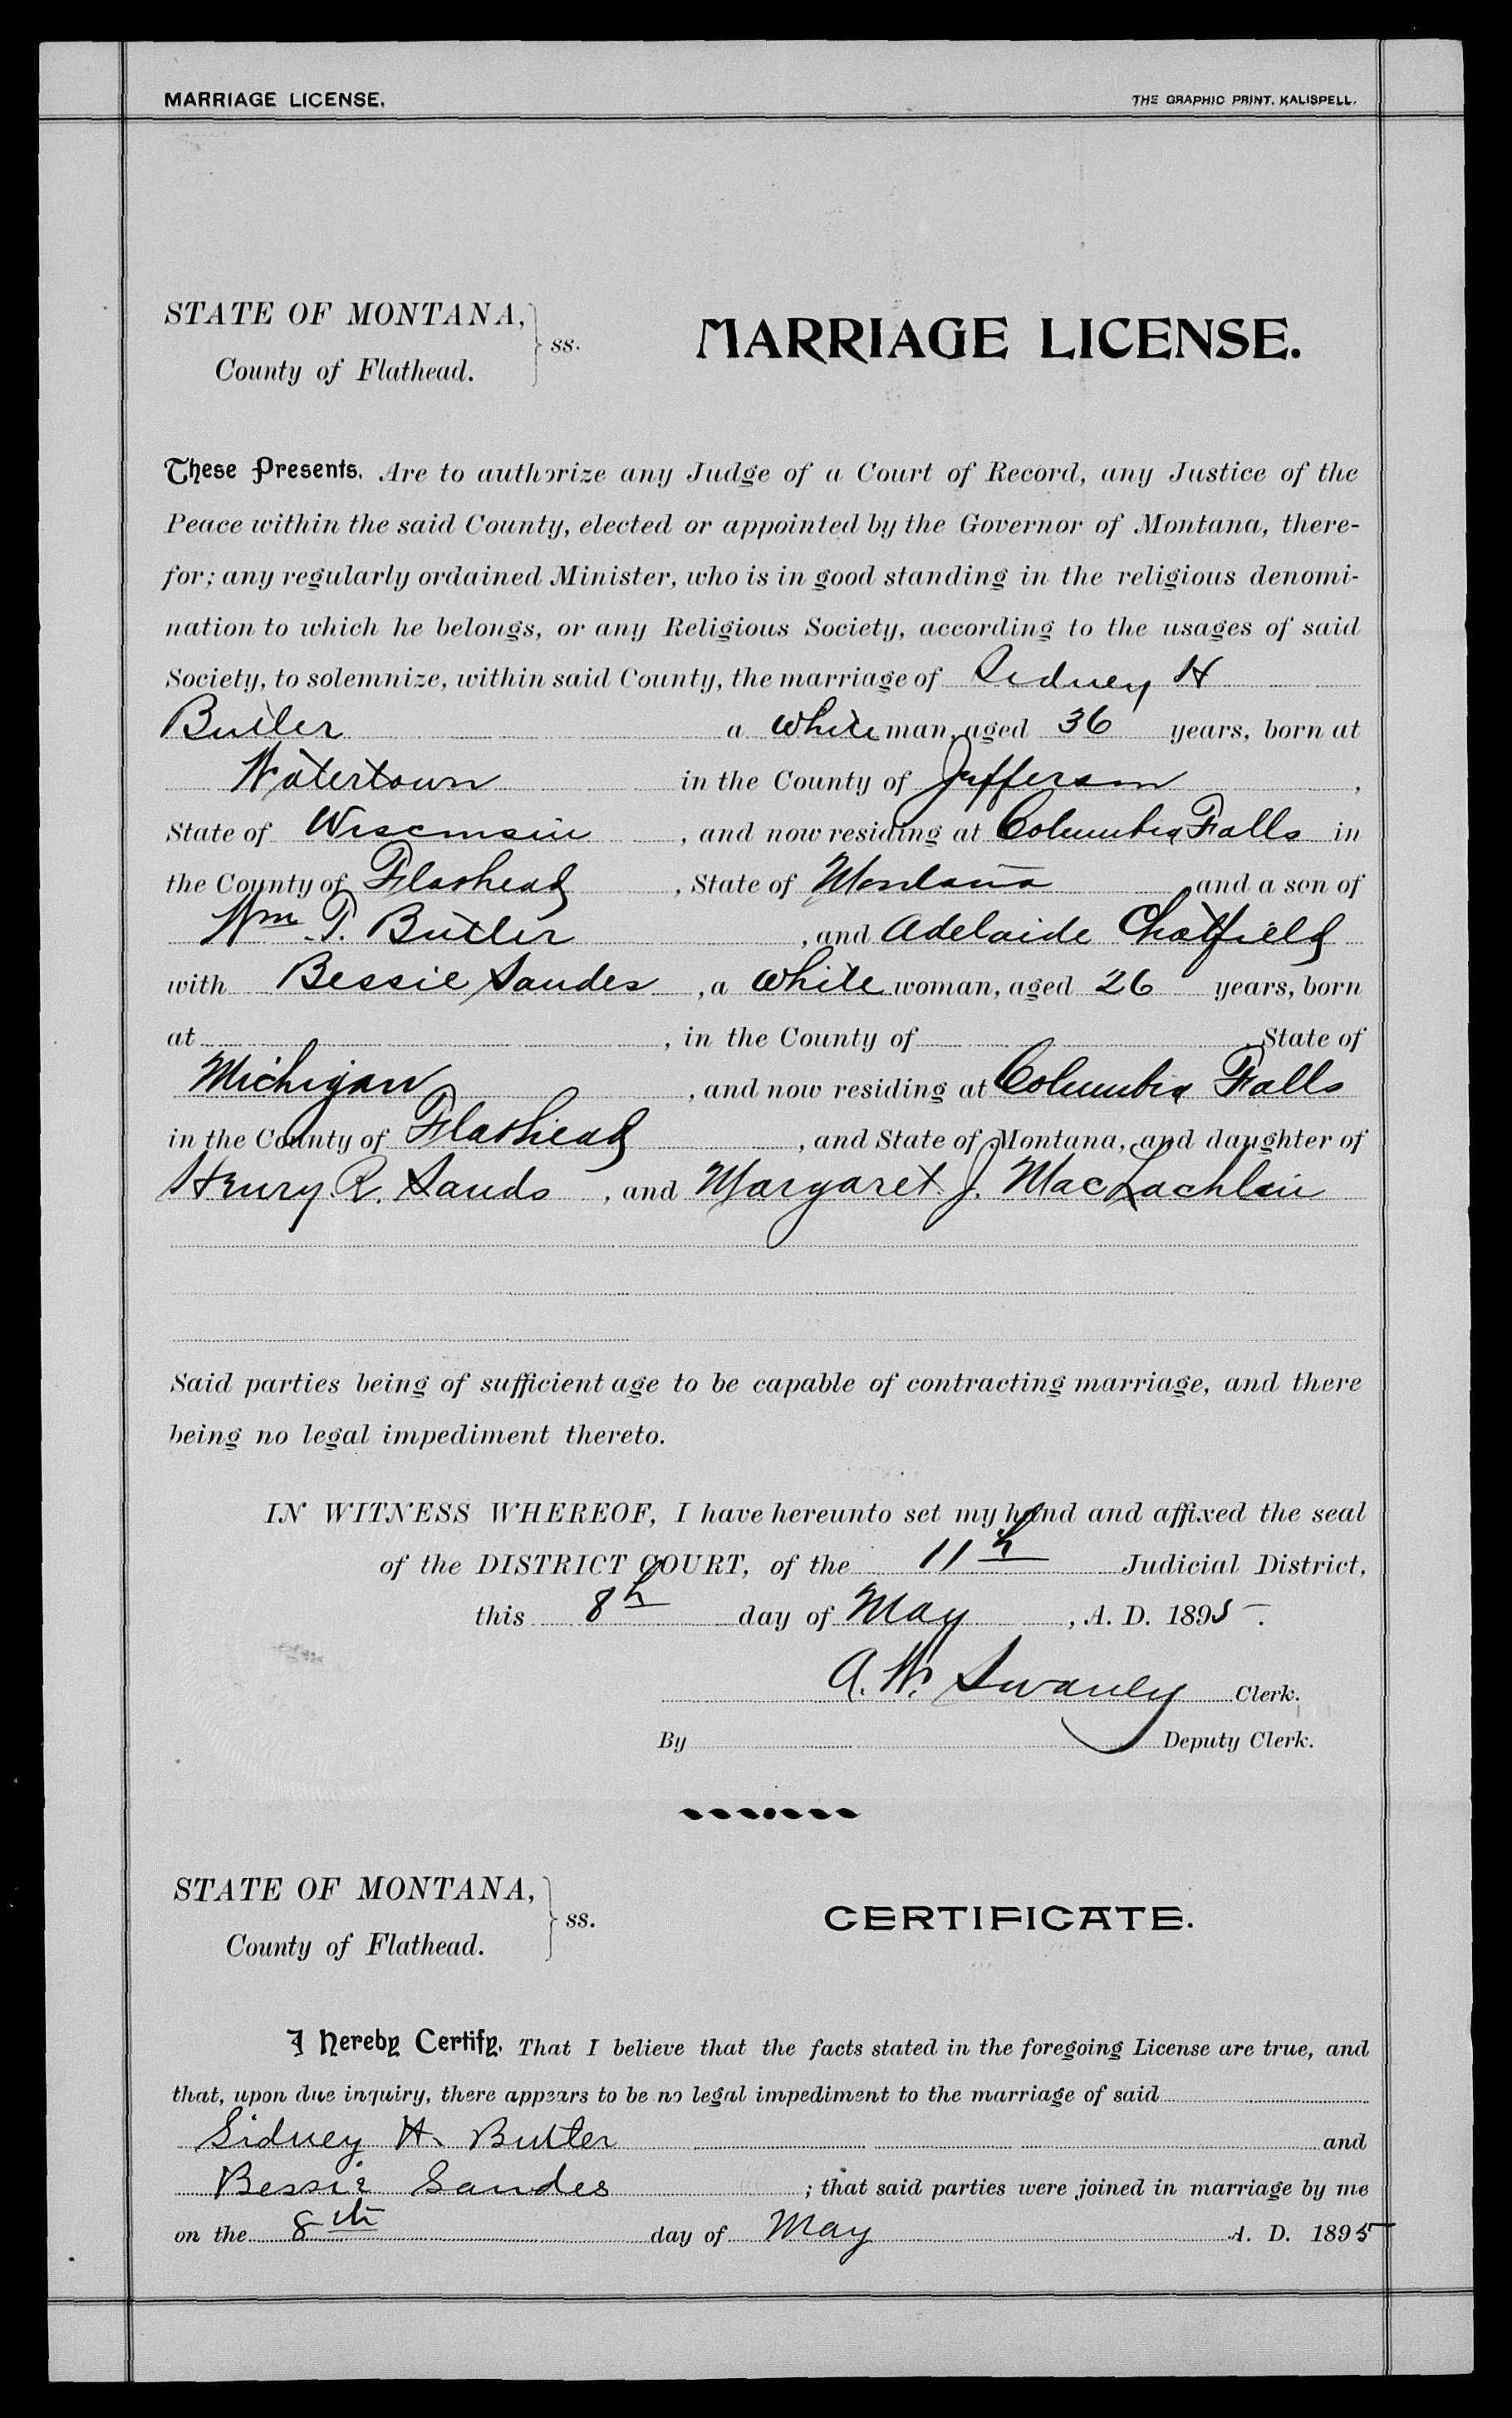 MARRIAGE LICENSE. THE GRAPHIC PRINT, KALISPELL.
STATE OF MONTANA,
County of Flathead. } ss.
MARRIAGE LICENSE.
These Presents, Are to authorize any Judge of a Court of Record, any Justice of the
Peace within the said County, elected or appointed by the Governor of Montana, there-
for; any regularly ordained Minister, who is in good standing in the religious denomi-
nation to which he belongs, or any Religious Society, according to the usages of said
Society, to solemnize, within said County, the marriage of Sidney H
Butler a white man, aged 36 years, born at
Watertown in the County of Jefferson,
State of Wisconsin, and now residing at Columbia Falls in
the County of Flathead, State of Montana and a son of
Wm. P. Butler, and Adelaide Chatfield
with Bessie Sandes, a white woman, aged 26 years, born
at , in the County of State of
Michigan, and now residing at Columbia Falls
in the County of Flathead, and State of Montana, and daughter of
Henry R. Sands, and Margaret J. MacLachlin
Said parties being of sufficient age to be capable of contracting marriage, and there
being no legal impediment thereto.
IN WITNESS WHEREOF, I have hereunto set my hand and affixed the seal
of the DISTRICT COURT, of the 11h Judicial District,
this 8h day of May, A. D. 1895.
A. W. Swaney Clerk.
By Deputy Clerk.
STATE OF MONTANA,
County of Flathead. } ss.
CERTIFICATE.
I Hereby Certify, That I believe that the facts stated in the foregoing License are true, and
that, upon due inquiry, there appears to be no legal impediment to the marriage of said
Sidney H. Butler and
Bessie Sandes ; that said parties were joined in marriage by me
on the 8th day of May A. D. 1895